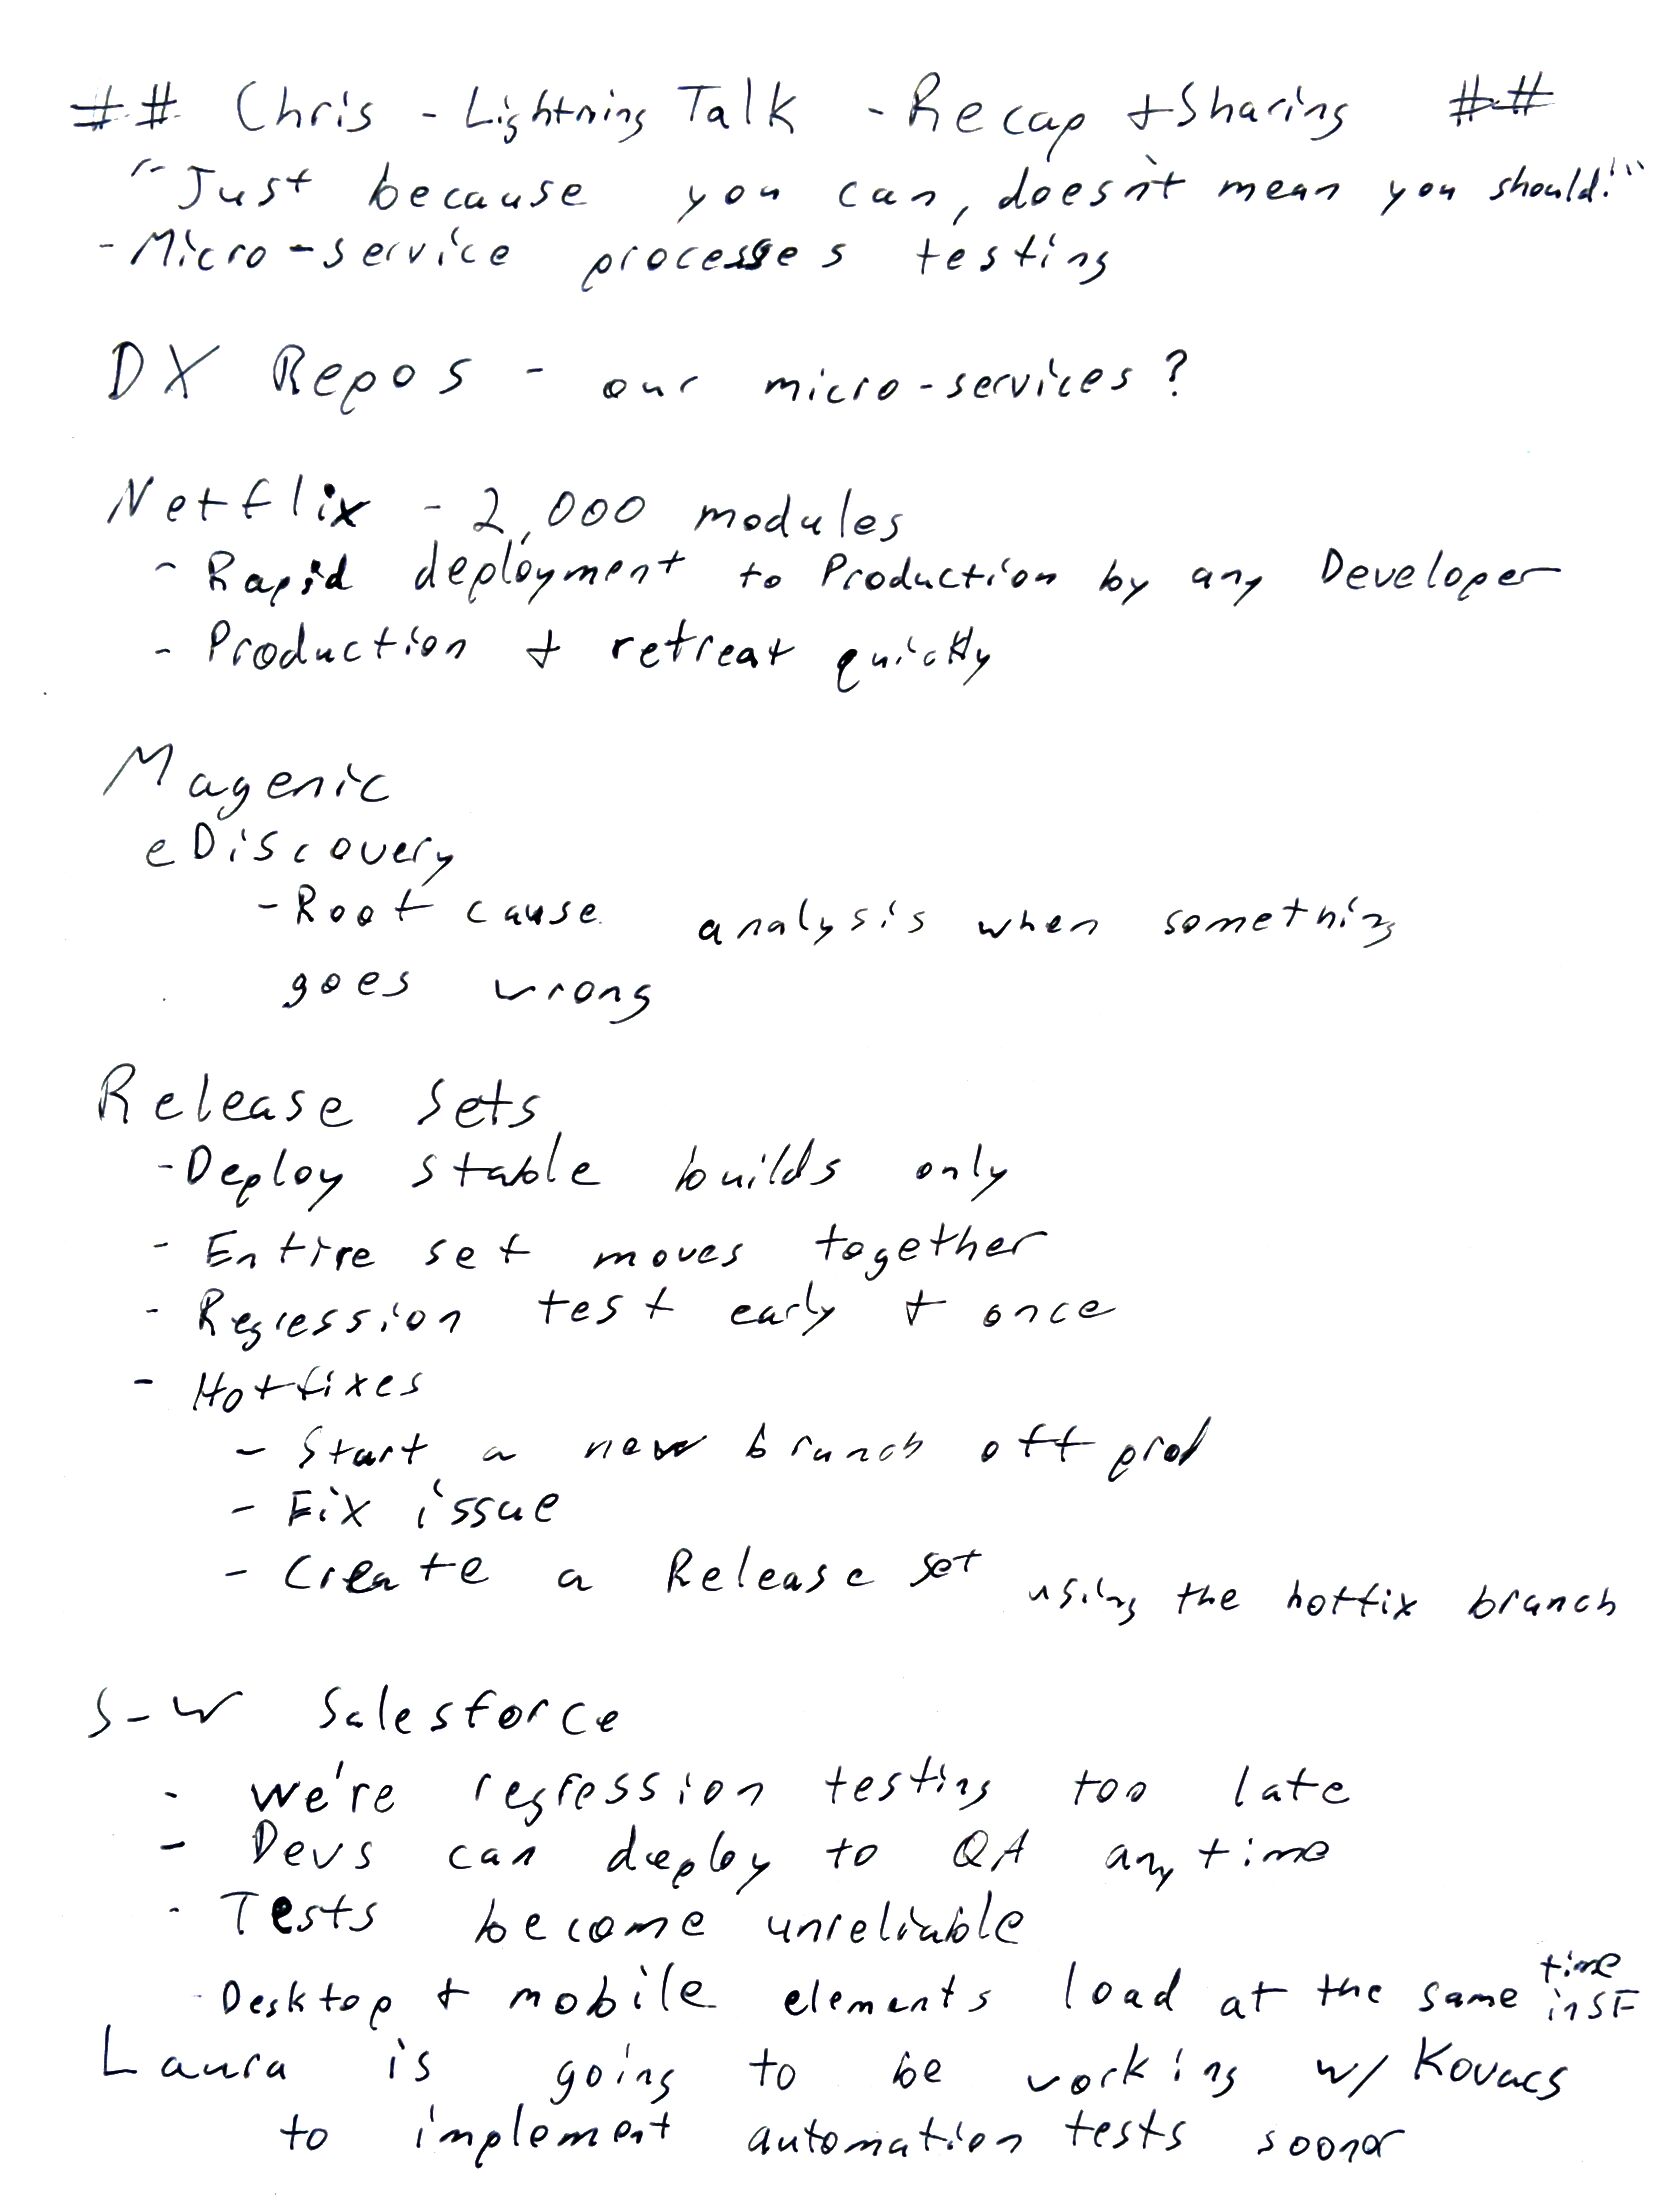 ## Chris - Lightning Talk - Recap + Sharing ##
"Just because you can, doesn't mean you should!"
- Micro-service processes testing
DX Repos - our micro-services?
Netflix - 2,000 modules
- Rapid deployment to Production by any Developer
- Production + retreat quickly
Magenic
eDiscovery
- Root cause analysis when something
goes wrong
Release Sets
- Deploy stable builds only
- Entire set moves together
- Regression test early + once
- Hotfixes
- Start a new branch off prod
- Fix issue
- Create a Release set using the hotfix branch
S-W Salesforce
- We're regression testing too late
- Devs can deploy to QA any time
- Tests become unreliable
- Desktop + mobile elements load at the same time in SF
Laura is going to be working w/ Kovacs
to implement automation tests sooner